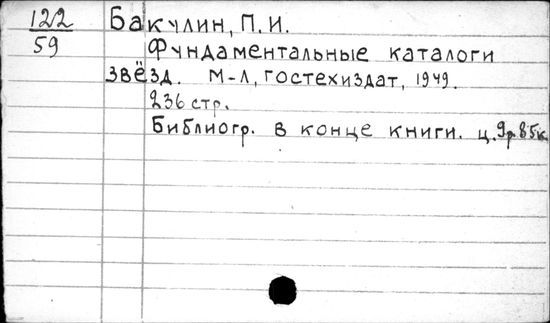 122 Бакулин, П.И.
59 Фундаментальные каталоги
звёзд. М-Л, гостехиздат, 1949.
236 стр.
Библиогр. в конце книги. ц. 9р.85к.